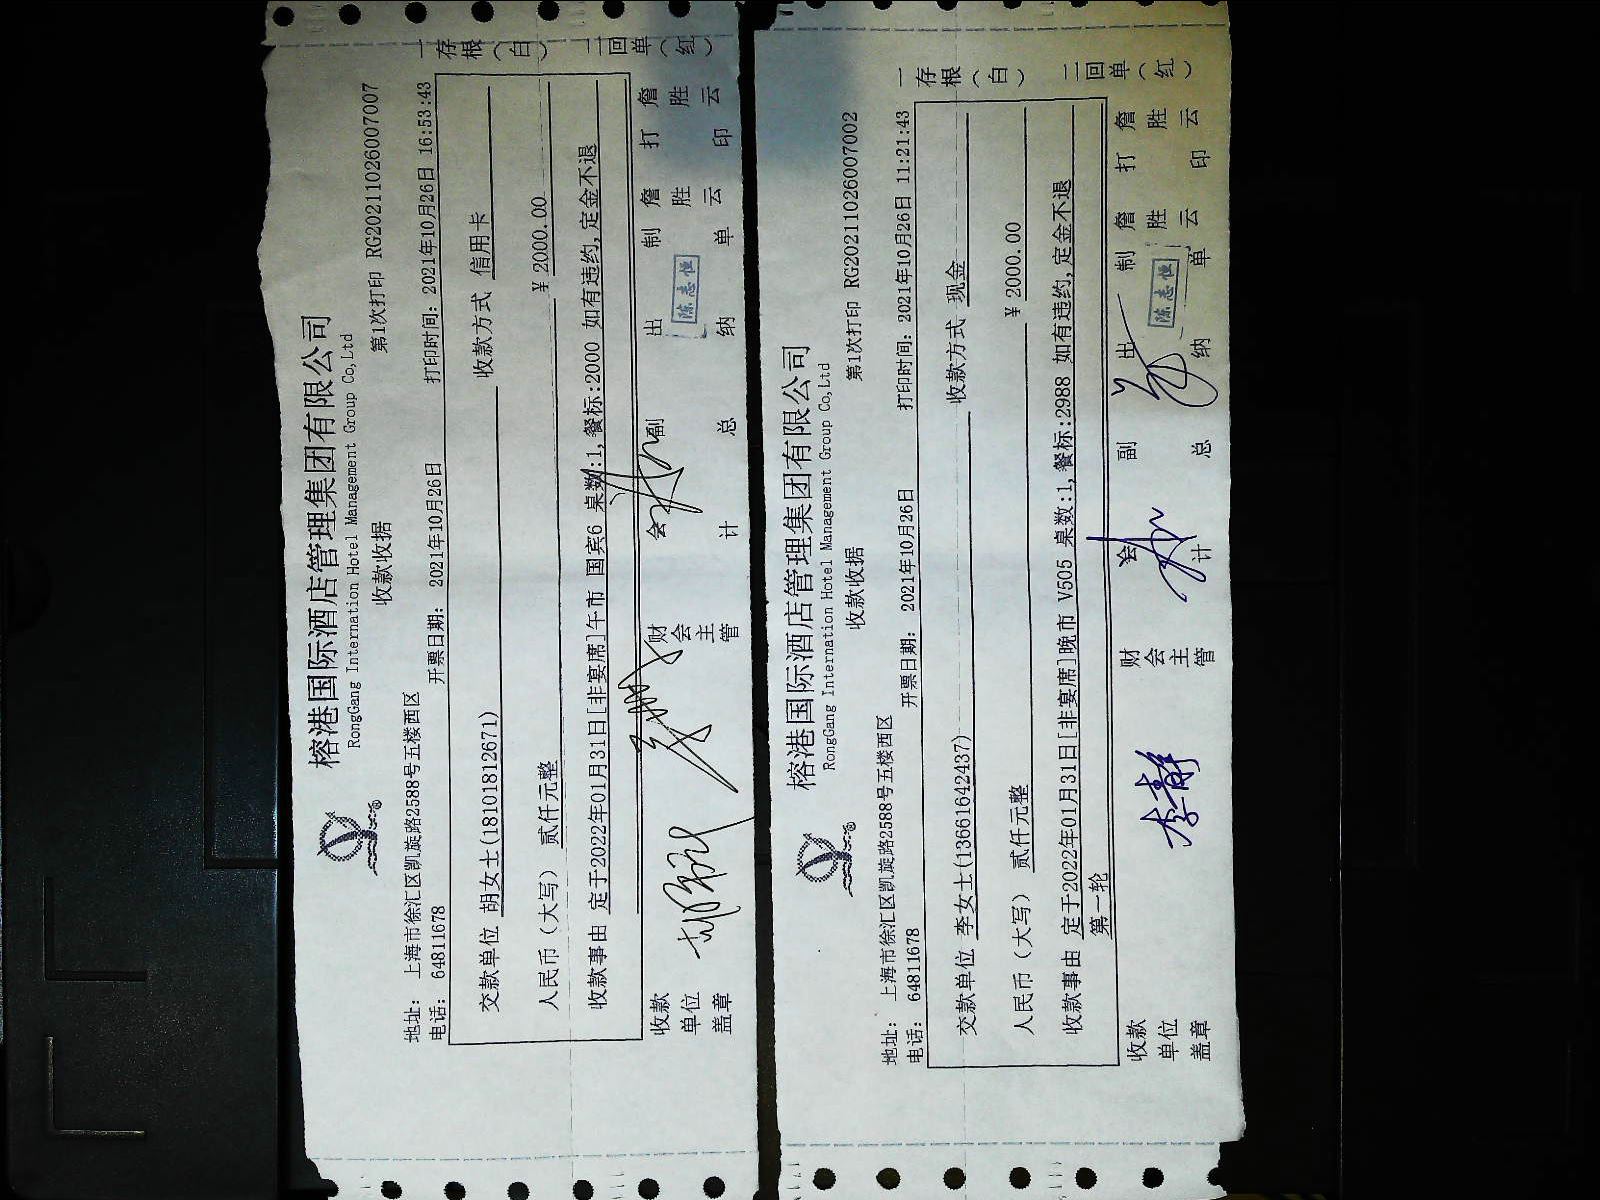 榕港国际酒店管理集团有限公司
RongGang Internation Hotel Management Group Co,Ltd
收款收据
第1次打印 RG20211026007007
地址: 上海市徐汇区凯旋路2588号五楼西区
电话: 64811678
开票日期: 2021年10月26日
打印时间: 2021年10月26日 16:53:43
交款单位 胡女士(18101812671)
收款方式 信用卡
人民币(大写) 贰仟元整
¥ 2000.00
收款事由 定于2022年01月31日[非宴席]午市 国宾6 桌数:1,餐标:2000 如有违约,定金不退
收款单位盖章
财会主管
会计
副总
出纳
陈志恒
制单 詹胜云
打印 詹胜云
一存根(白)
二回单(红)
榕港国际酒店管理集团有限公司
RongGang Internation Hotel Management Group Co,Ltd
收款收据
第1次打印 RG20211026007002
地址: 上海市徐汇区凯旋路2588号五楼西区
电话: 64811678
开票日期: 2021年10月26日
打印时间: 2021年10月26日 11:21:43
交款单位 李女士(13661642437)
收款方式 现金
人民币(大写) 贰仟元整
¥ 2000.00
收款事由 定于2022年01月31日[非宴席]晚市 V505 桌数:1,餐标:2988 如有违约,定金不退
第一轮
收款单位盖章
李静
财会主管
会计
副总
出纳
陈志恒
制单 詹胜云
打印 詹胜云
一存根(白)
二回单(红)